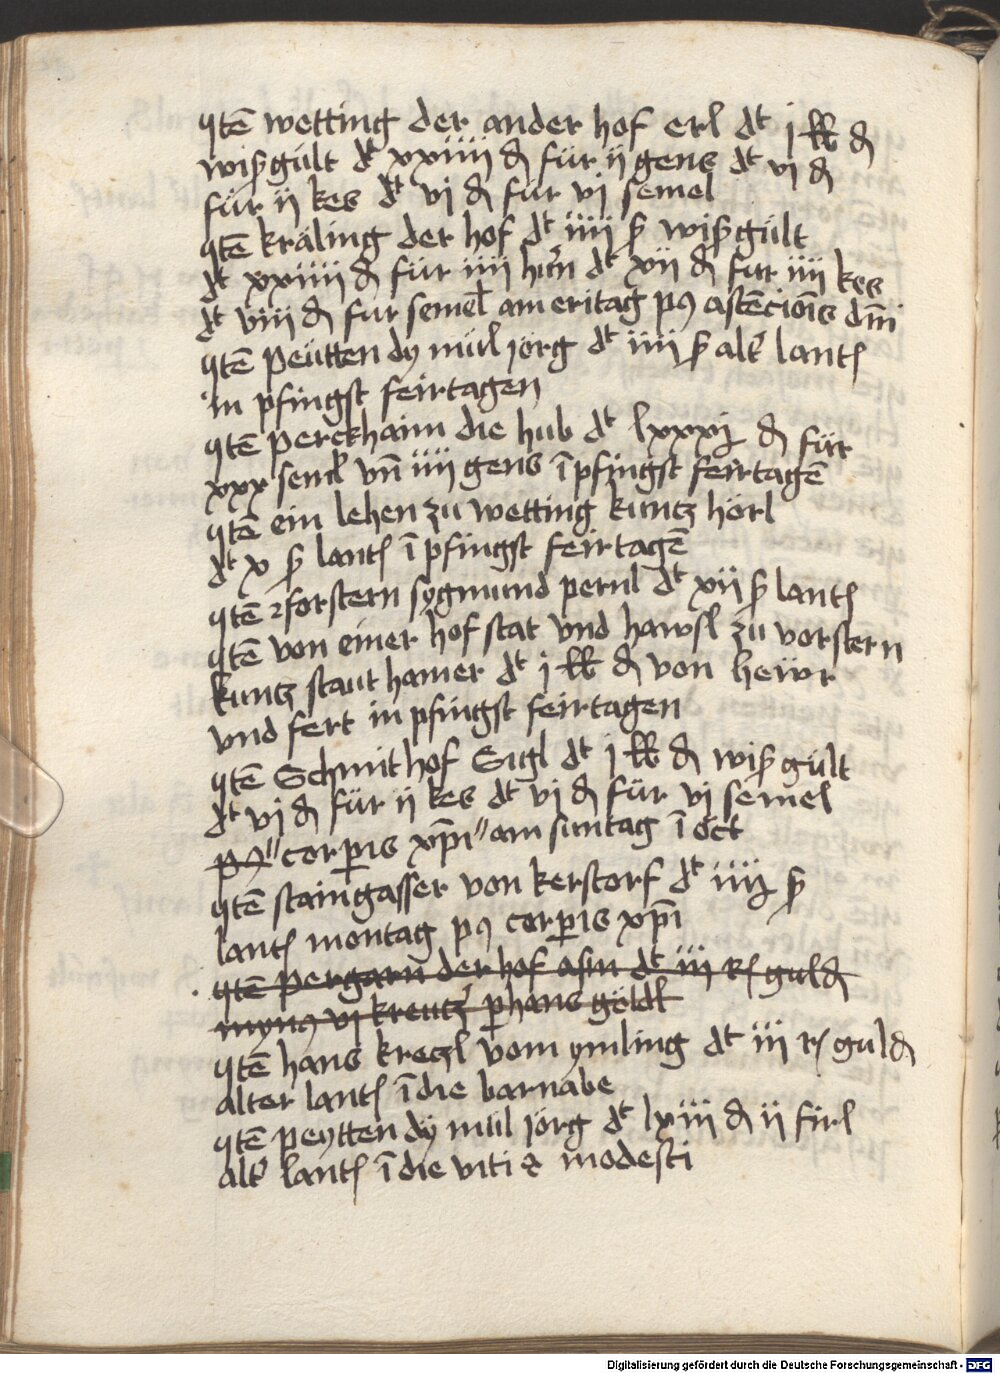 qtē wetting der ander hof erl dt j lb ₰
wisgült dt xxiiii ₰ für ii gens dt vi ₰
für ii kes dt vj ₰ für vj semel
qtē kräling der hof dt iiii ß wisgült
dt xxiiii ₰ für iiii hūn dt xii ₰ für iiii kes
dt viii ₰ für semel am eritag pꝰ astēciōis dm̄i
qtē peütten dy mül jörg dt iiii ß alt' lantß
in pfingst feirtagen
qtē perckhaim die hub dt lxxxj ₰ für
xxx seml vn̄ iiii gens ī pfingst feirtagē
qtē ein lehen zu wetting kuntz hörl
dt x ß lantß ī pfingst feirtagē
qtē forstern sygmund pernl dt xii ß lantß
qtē von einer hofstat vnd hawsl zu vorstern
kuntz stauthamer dt j lb ₰ von hewr
vnd fert in pfingst feirtagen
qtē Schmithof Sigl dt j lb ₰ wisgült
dt vj ₰ für ii kes dt vj ₰ für vj semel
pꝰ "corꝑis xp̄i" am suntag ī oct
qtē staingasser von kerstorf dt iiij ß
lantß montag pꝰ corꝑis xp̄i
qtē pergarn der hof asm dt iii rß guld
mynꝰ vj kreutz' ꝑ hans göldl
qtē hans kreczl vom ymling dt iii rß guld
alter lantß ī die barnabe
qtē peytten dÿ mül jörg dt lxiii ₰ ii firl
alt' lantß ī die viti & modesti
Digitalisierung gefördert durch die Deutsche Forschungsgemeinschaft - DFG